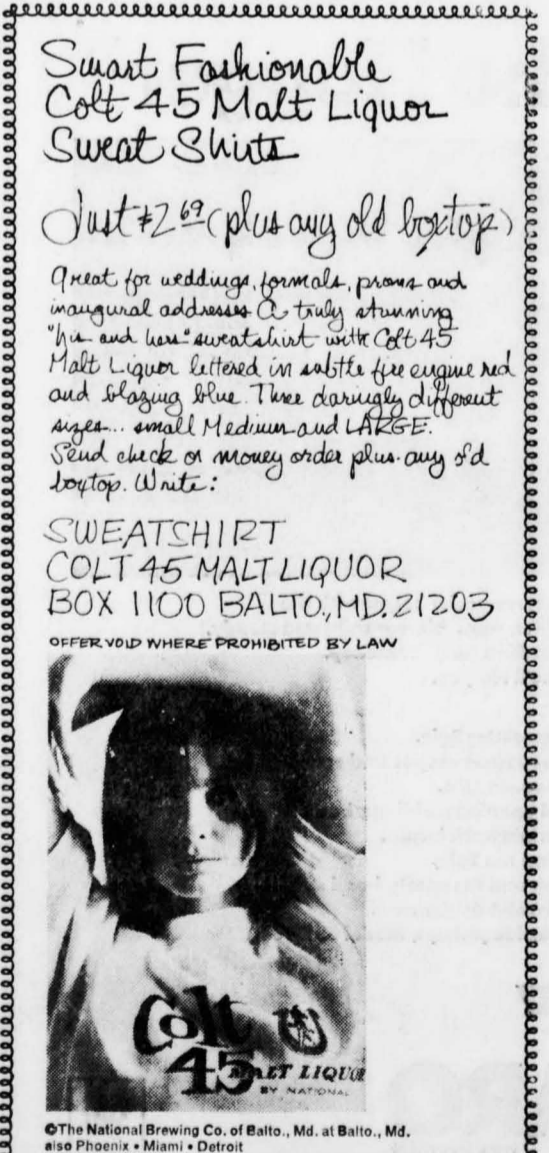 Smart Fashionable
Colt 45 Malt Liquor
Sweat Shirts
Just $2.69 (plus any old boxtop)
Great for weddings, formals, proms and
inaugural addresses A truly stunning
"his and hers" sweatshirt with Colt 45
Malt Liquor lettered in subtle fire engine red
and blazing blue. Three daringly different
sizes... small Medium and LARGE.
Send check or money order plus any old
boxtop. Write:
SWEATSHIRT
COLT 45 MALT LIQUOR
BOX 1100 BALTO., MD. 21203
OFFER VOID WHERE PROHIBITED BY LAW
Colt
45 MALT LIQUOR
BY NATIONAL
©The National Brewing Co. of Balto., Md. at Balto., Md.
also Phoenix • Miami • Detroit